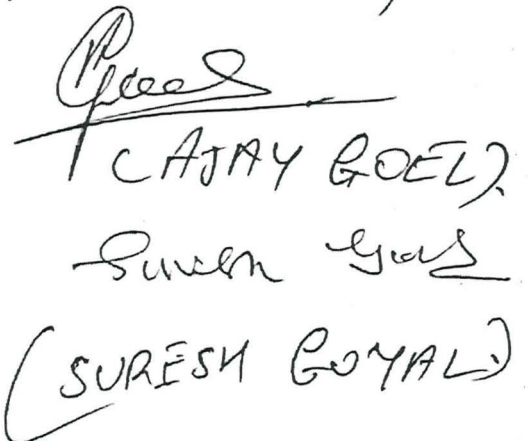 (AJAY GOEL).
Suresh Goyal
(SURESH GOYAL)